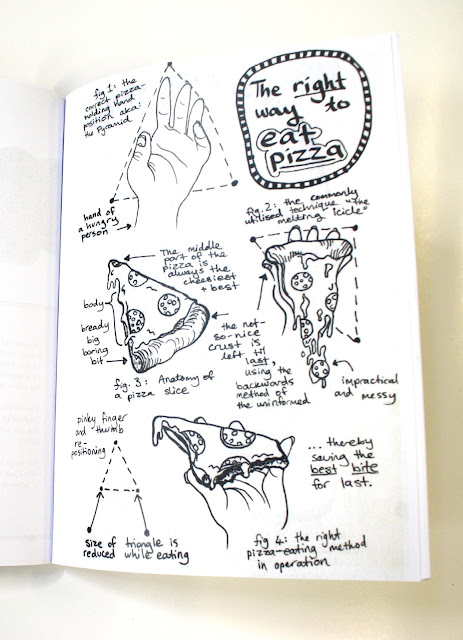 The right
way to
eat
pizza
fig 1: the
correct pizza-
holding hand
position aka:
the Pyramid
hand of
a hungry
person
fig. 2: the commonly
utilised technique "the
melting Icicle"
The middle
part of the
pizza is
always the
cheesiest
+ best
body
bready
big
boring
bit
fig. 3: Anatomy of
a pizza slice
the not-
so-nice
crust is
left til
last,
using the
backwards
method of
the uninformed
impractical
and messy
pinky finger
and thumb
re-
positioning
size of triangle is
reduced while eating
... thereby
saving the
best bite
for last.
fig 4: the right
pizza-eating method
in operation